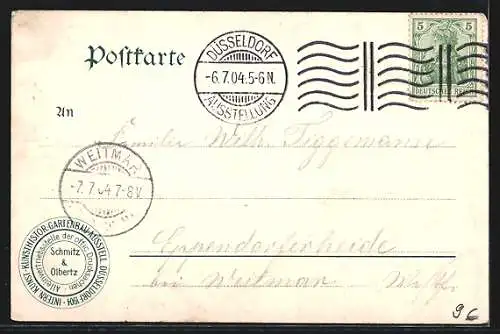 Postkarte
DÜSSELDORF
-6.7.04.5-6N.
AUSSTELLUNG
5 5
DEUTSCHES REICH
An
Familie Wilh. Tiggemann
WEITMAR
-7.7.04.7-8V.
INTERN. KUNST-KUNSTHISTOR. GARTENBAU-AUSSTELL. DÜSSELDORF 1904
Alleinvertriebsstelle der offic. Drucksachen
Schmitz
&
Olbertz
Eppendorferheide
bei Weitmar Westf.
96